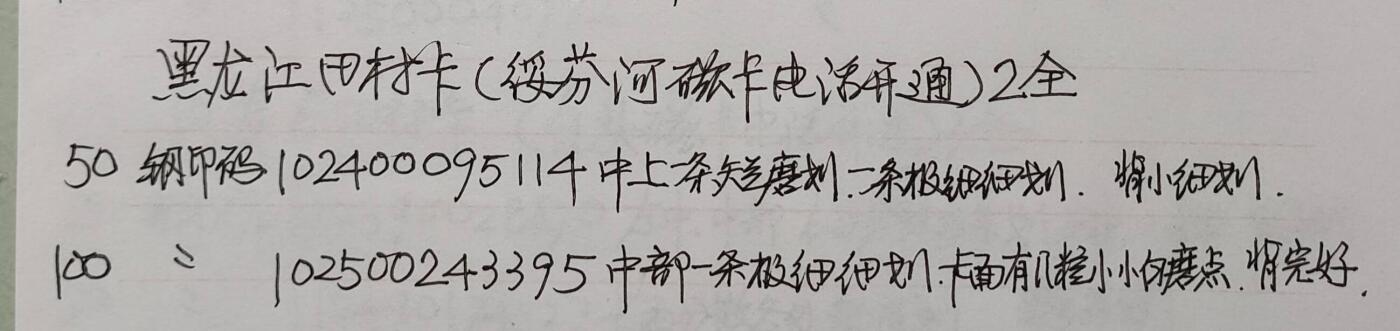 黑龙江田村卡(绥芬河磁卡电话开通)2全
50 钢印码102400095114中上一条短磨划.二条极细细划. 背小细划.
100 〃 102500243395中部一条极细细划.卡面有几粒小小白磨点.背完好.